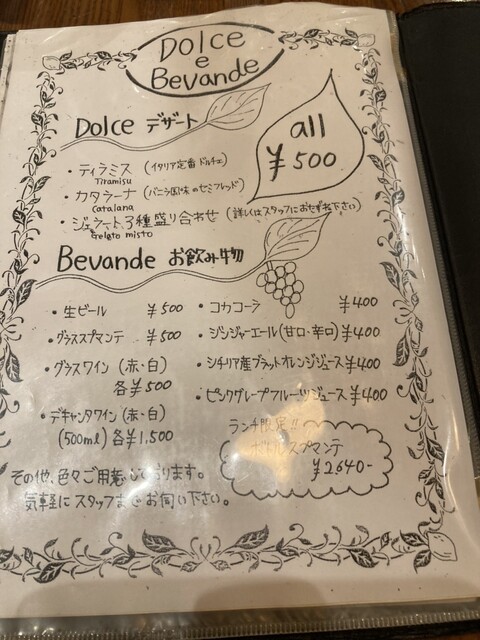 Dolce
e
Bevande
Dolce デザート
all
¥500
・ティラミス (イタリア定番ドルチェ)
Tiramisu
・カタラーナ (バニラ風味のセミフレッド)
Catalana
・ジェラート3種盛り合わせ (詳しくはスタッフにおたずね下さい)
Gelato misto
Bevande お飲み物
・生ビール ¥500
・グラススプマンテ ¥500
・グラスワイン (赤・白)
各¥500
・デキャンタワイン (赤・白)
(500ml) 各¥1,500
・コカコーラ ¥400
・ジンジャーエール(甘口・辛口) ¥400
・シチリア産ブラッドオレンジジュース ¥400
・ピンクグレープフルーツジュース ¥400
ランチ限定!!
ボトルスプマンテ
¥2,640-
その他、色々ご用意しております。
気軽にスタッフまでお伺い下さい。